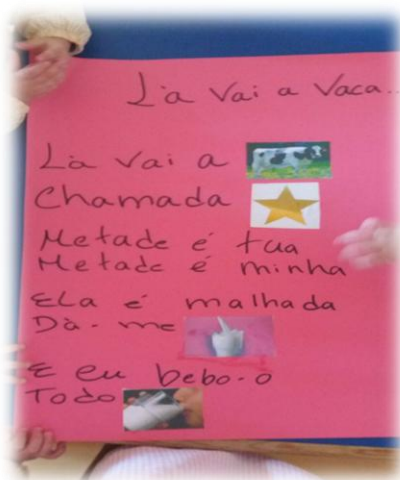 Là vai a Vaca...
Là vai a
Chamada
Metade é tua
Metade é minha
Ela é malhada
Dà-me
E eu bebo-o
Todo